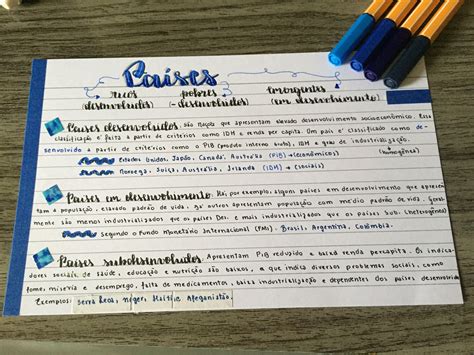 Países
ricos pobres emergentes
desenvolvidos (- desenvolvidos) (em desenvolvimento)
Países desenvolvidos: são nações que apresentam elevado desenvolvimento socioeconômico. Essa
classificação é feita a partir de critérios como IDH e renda per capita. Um país é classificado como de-
senvolvido a partir de critérios como o PIB (produto interno bruto), IDH e grau de industrialização.
Estados Unidos, Japão, Canadá, Austrália (PIB) → (econômicos) (homogênea)
Noruega, Suíça, Austrália, Irlanda (IDH) → (sociais)
Países em desenvolvimento. Há, por exemplo, alguns países em desenvolvimento que apresen-
tam a população, elevado padrão de vida, ou outros apresentam população com médio padrão de vida. Geral-
mente são menos industrializados que os países Des. e mais industrializados que os países Sub. (heterogêneo)
segundo o Fundo Monetário Internacional (FMI). Brasil, Argentina, Colômbia.
Países subdesenvolvidos. Apresentam PIB reduzido e baixa renda percapita. Os indica-
dores sociais, de saúde, educação e nutrição são baixos, o que indica diversos problemas sociais, como
fome, miséria e desemprego, falta de medicamentos, baixa industrialização e dependentes dos países desenvolvidos
Exemplos: Serra Leoa, Níger, Haiti e Afeganistão.